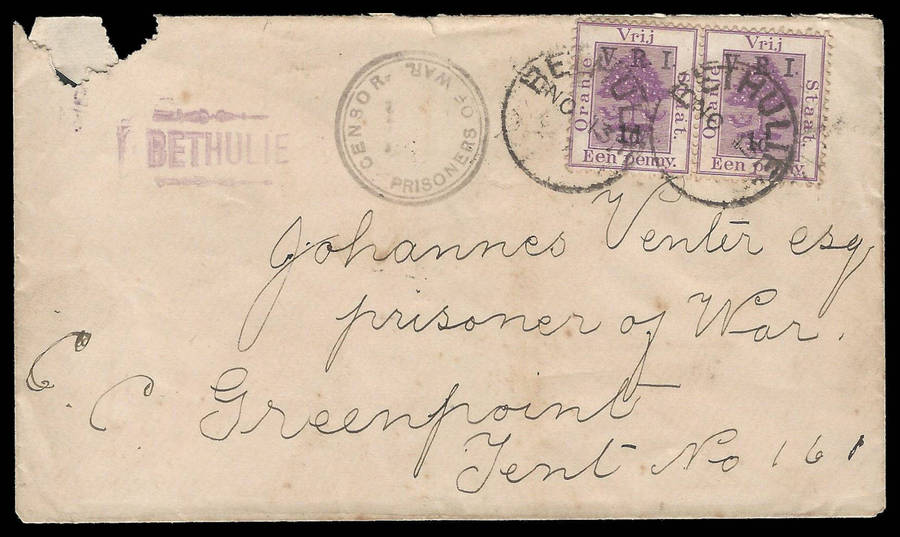 BETHULIE
CENSOR. PRISONERS OF WAR.
BETHULIE
NO
Oranje Vrij Staat.
V. R. I.
1d
Een penny.
BETHULIE
NO
Oranje Vrij Staat.
V. R. I.
1d
Een penny.
Johannes Venter esq
prisoner of War.
C. C Greenpoint
Tent No 161